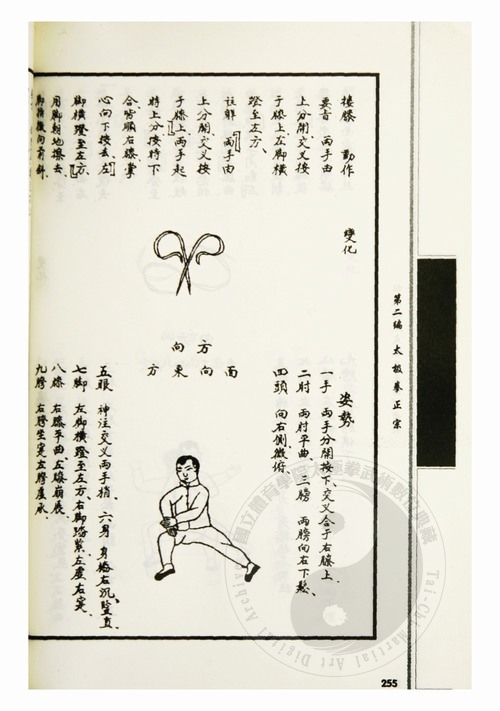 第二編 太極拳正宗
摟膝 動作
要言 兩手由
上分開、交义按
于膝上、左脚横
蹬至左方、
註解 [兩手由
上分開、交义按
于膝上、]兩手起
時上分按時下
合皆順右膝掌
心向下按去、[左
脚横蹬至左方、]
用脚朝地擦去、
脚横微向前斜、
變化
方向
面向東方
姿勢
一手 兩手分開按下、交义合于右膝上、
二肘 兩肘平曲、三膀 兩膀向右下鬆、
四頭 向右側微俯、
五眼 神注交义兩手梢、六身 身椿右沉、豎直、
七脚 左脚横蹬至左方、右脚踏紮、左虛右實、
八膝 右膝平曲、左膝崩展、
九胯 右胯坐實、左胯虛承、
255
Tai-Chi Martial Art Digital Archives